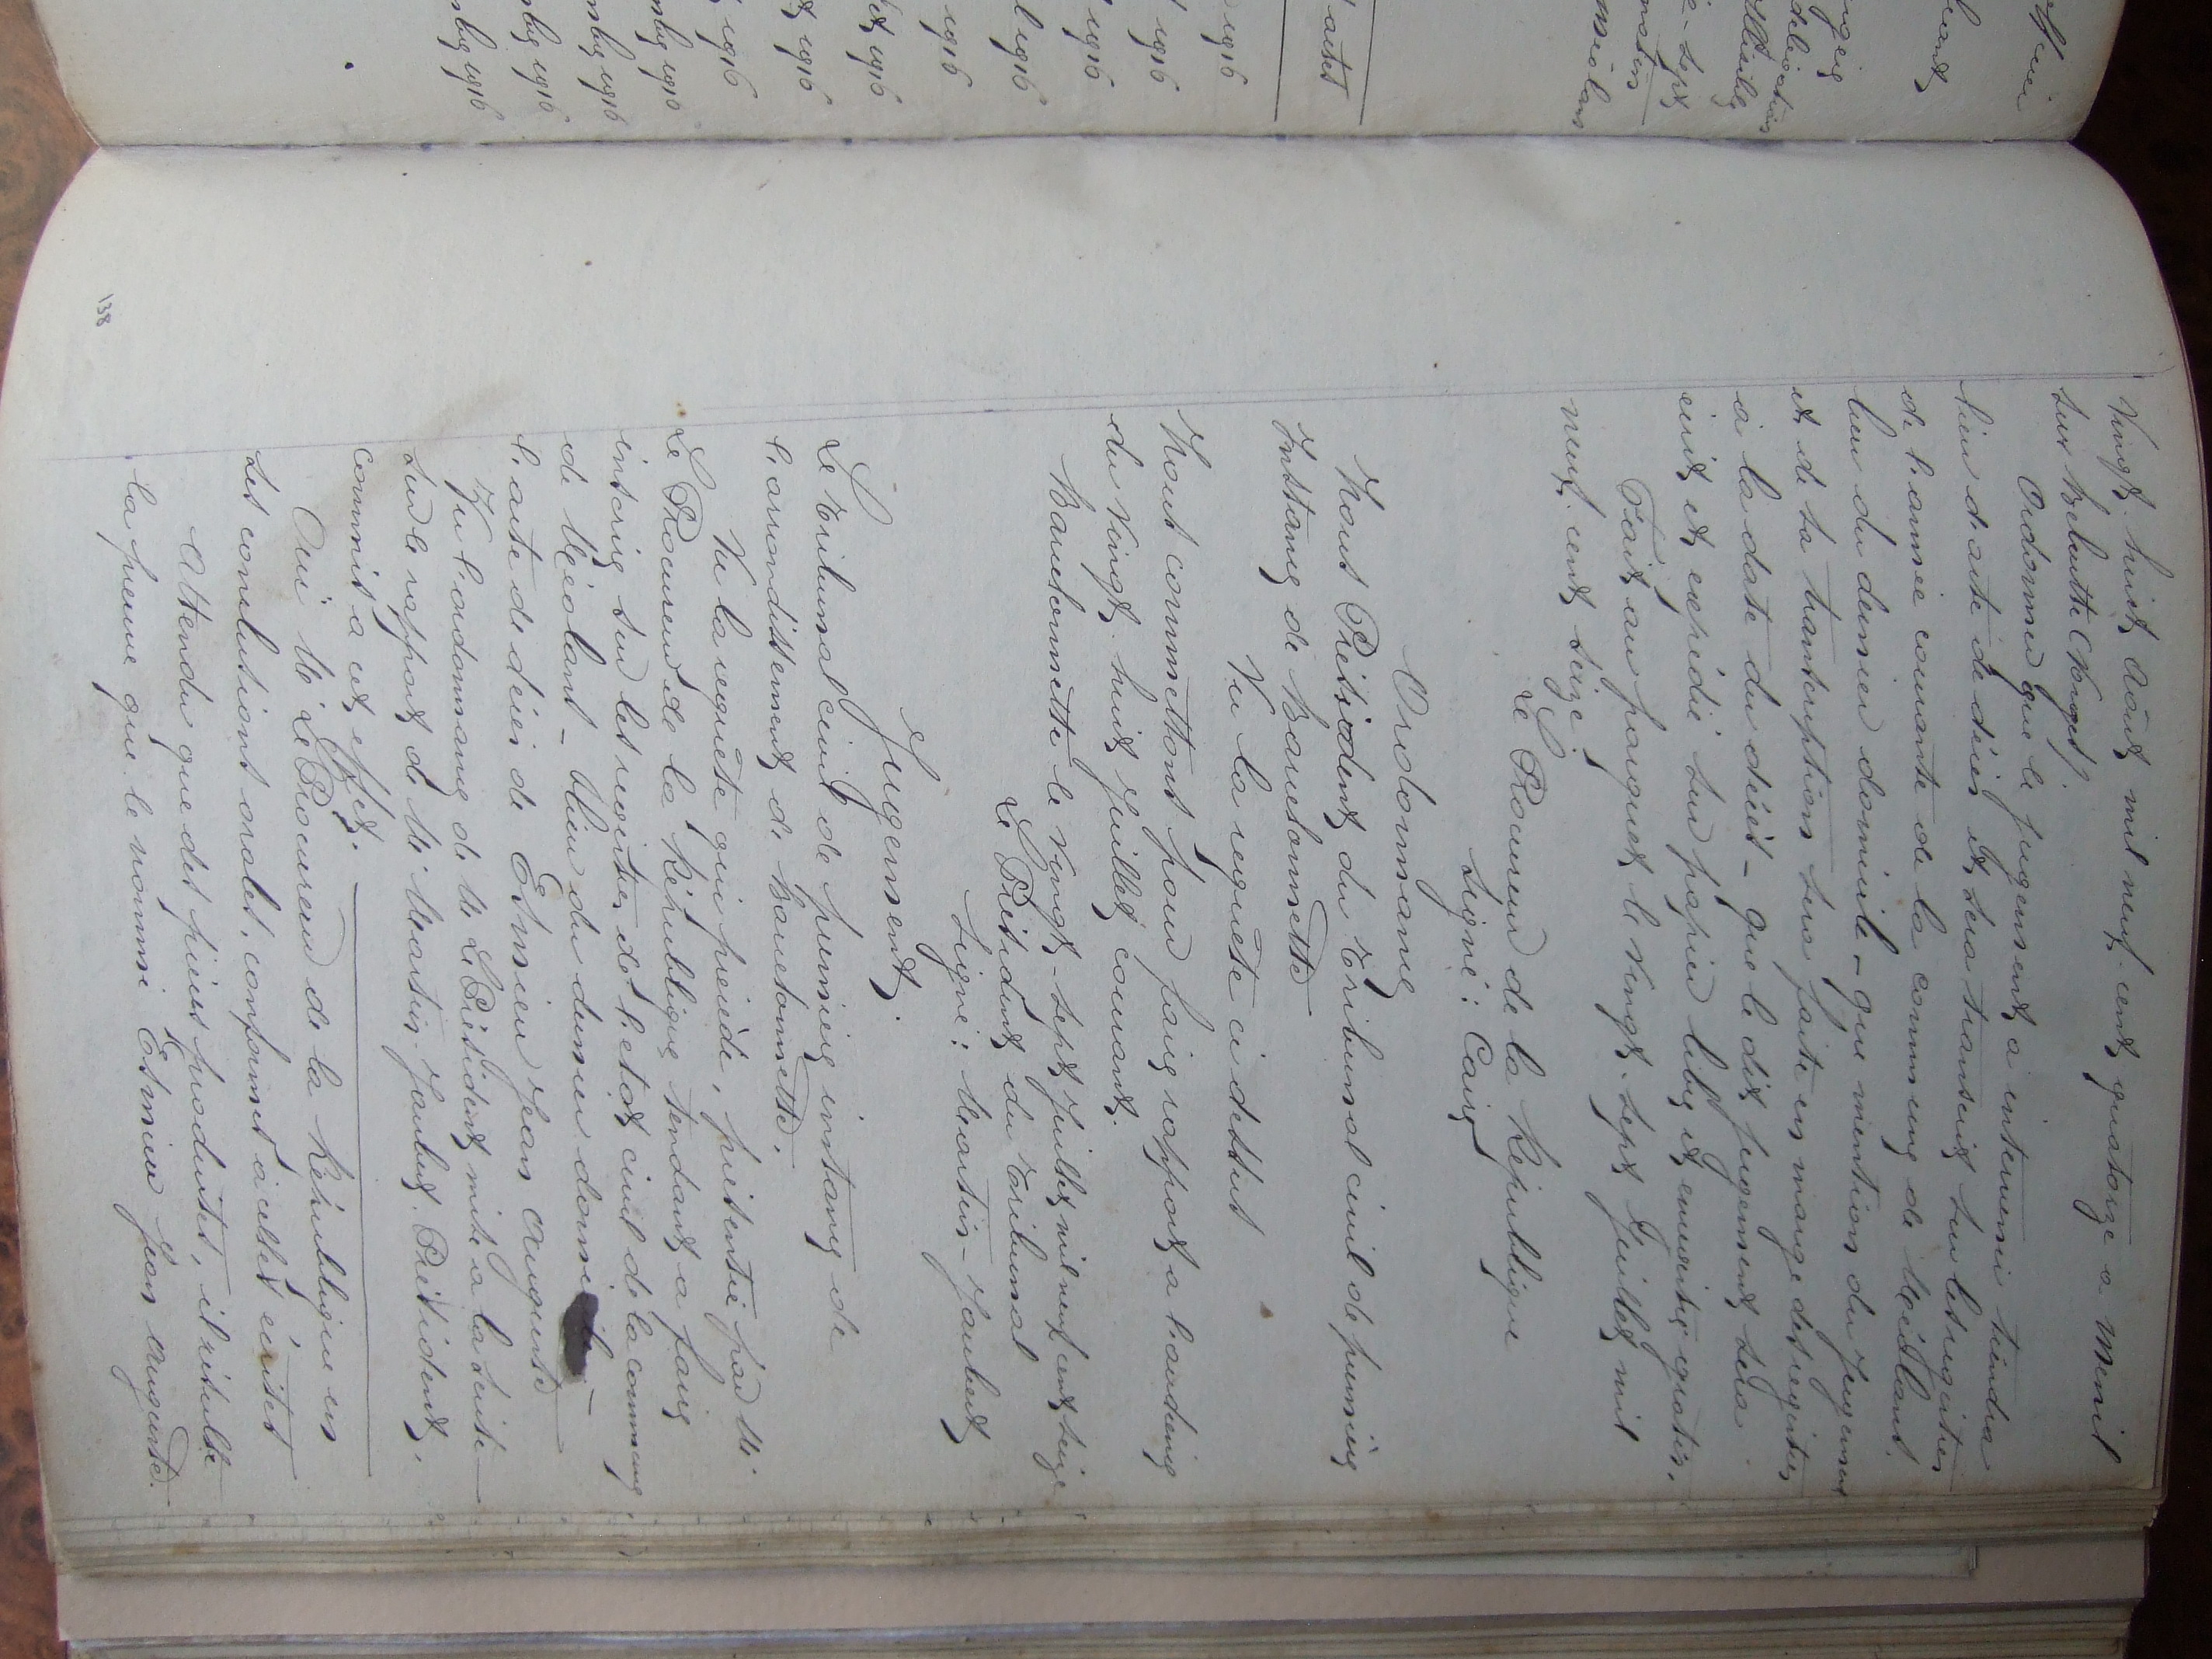 Vingt-huit Août mil neuf-cent quatorze a Menil
sur Belvitte (Vosges).
Ordonner que le jugement a intervenir tiendra
lieu d'acte de décès et sera transcrit sur les registres
de l'année courante de la commune de Méolans
lieu du dernier domicile - que mention du jugement
et de sa transcription sera faite en marge des registres
à la date du décès - que le dit jugement sera
écrit et expédié sur papier libre et enregistré gratis.
Fait au parquet le vingt-sept Juillet mil
neuf-cent seize
Le Procureur de la République
Signé: Caire
Ordonnance
Nous Président du Tribunal civil de première
Instance de Barcelonnette
Vu la requête ci dessus
Nous commettons pour faire rapport a l'audience
du Vingt-huit Juillet courant.
Barcelonnette le vingt-sept Juillet mil neuf cent seize
Le Président du Tribunal
Signé: Martin-Jaubert
Jugement.
Le Tribunal civil de première instance de
l'arrondissement de Barcelonnette,
Vu la requête qui précède, présentée par Mr
Le Procureur de la République tendant a faire
inscrire sur les registres de l'etat civil de la commune
de Méolans - lieu du dernier domicile -
l'acte de décès de Esmieu Jean Auguste
Vu l'ordonnance de Mr Le Président mise a la suite
Sur le rapport de Mr Martin-Jaubert Président,
commis a cet effet.
Oui Mr Le Procureur de la République en
ses conclusions orales, conformes a celles écrites
Attendu que des pièces produites, il résulte
la preuve que le nommé Esmieu Jean Auguste
138
actes
1916
1916
1916
1916
1916
1916
1916
1916
1916
1916
1916
1916